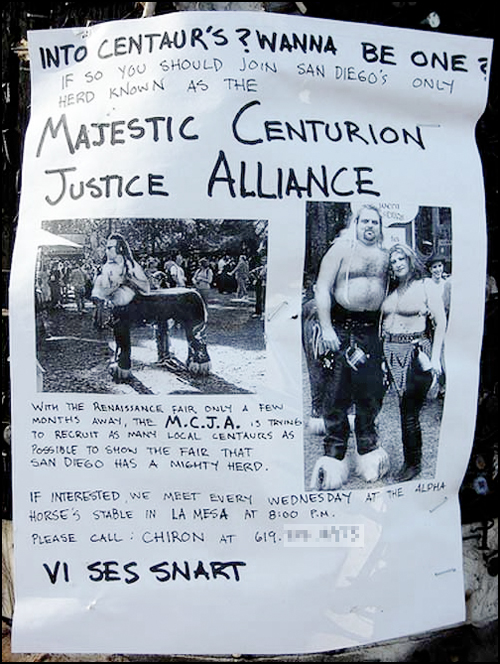 INTO CENTAUR'S? WANNA BE ONE?
IF SO YOU SHOULD JOIN SAN DIEGO'S ONLY
HERD KNOWN AS THE
MAJESTIC CENTURION
JUSTICE ALLIANCE
WITH THE RENAISSANCE FAIR ONLY A FEW
MONTHS AWAY, THE M.C.J.A. IS TRYING
TO RECRUIT AS MANY LOCAL CENTAURS AS
POSSIBLE TO SHOW THE FAIR THAT
SAN DIEGO HAS A MIGHTY HERD.
IF INTERESTED, WE MEET EVERY WEDNESDAY AT THE ALPHA
HORSE'S STABLE IN LA MESA AT 8:00 P.M.
PLEASE CALL: CHIRON AT 619.
VI SES SNART